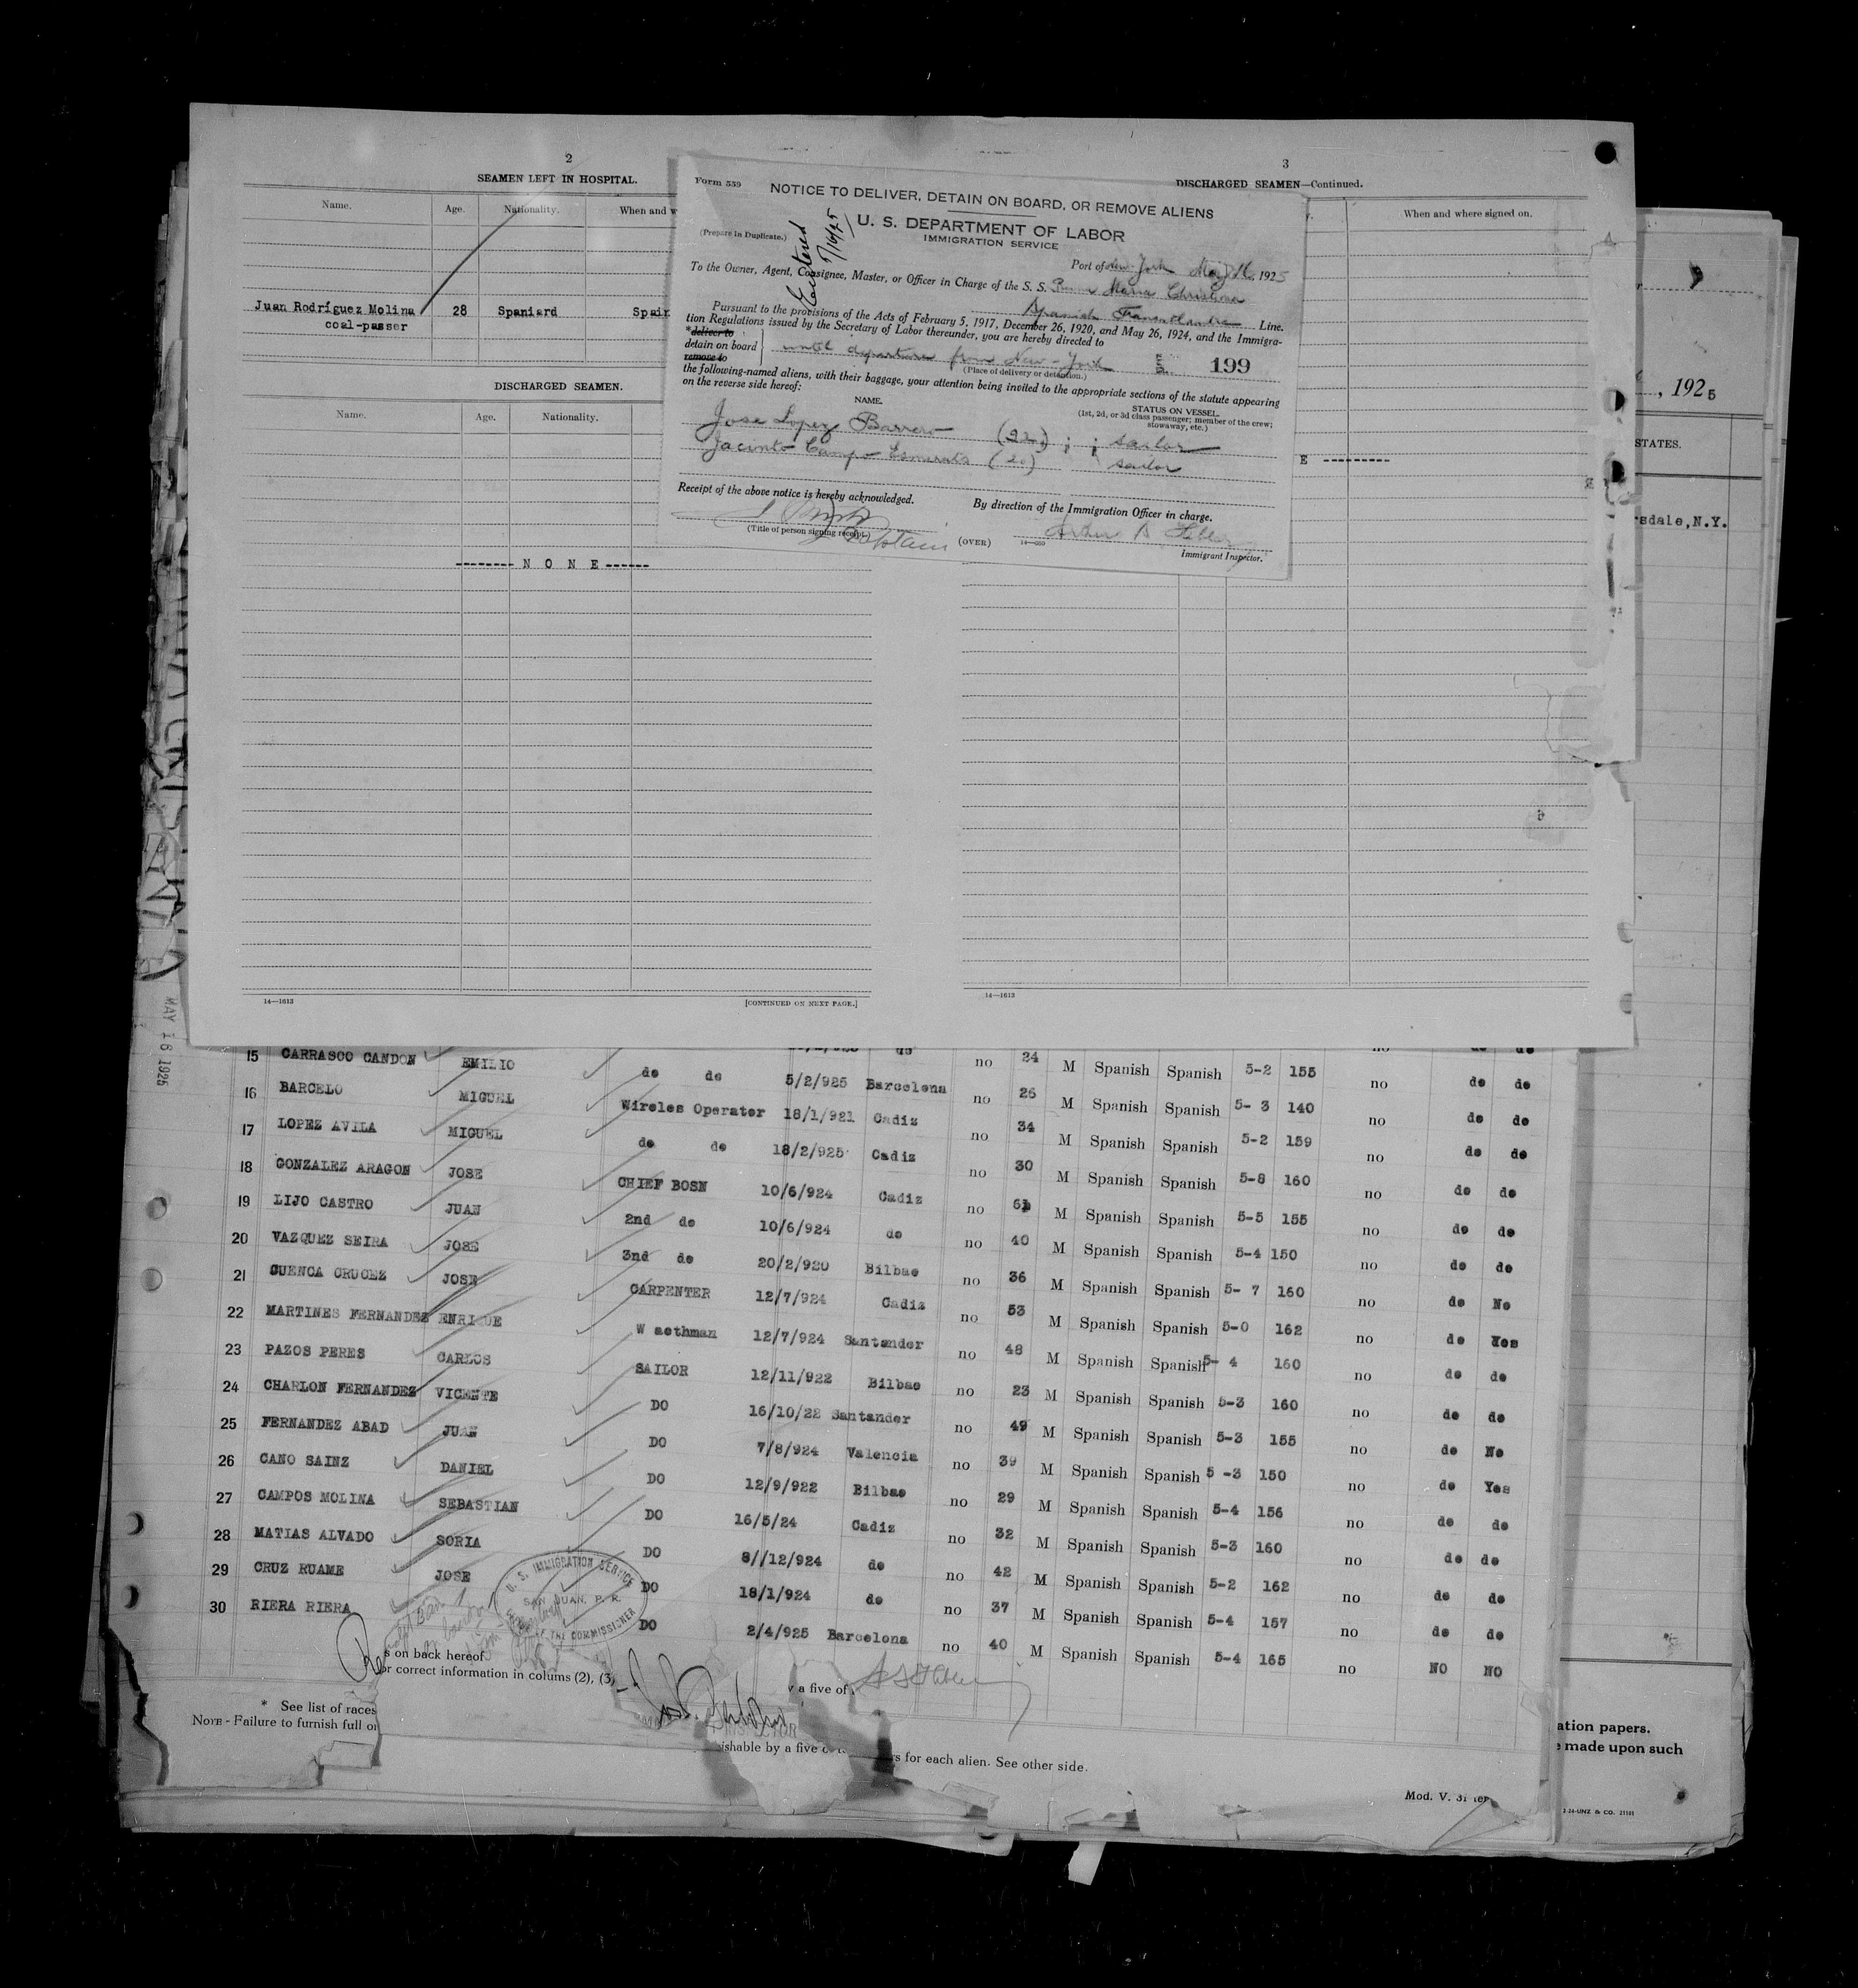 2
SEAMEN LEFT IN HOSPITAL.
Name. Age. Nationality. When and w
Juan Rodríguez Molina 28 Spaniard Spain
coal-passer
DISCHARGED SEAMEN.
Name. Age. Nationality.
-------- N O N E ------
14—1613 [CONTINUED ON NEXT PAGE.]
Form 559
NOTICE TO DELIVER, DETAIN ON BOARD, OR REMOVE ALIENS
U. S. DEPARTMENT OF LABOR
IMMIGRATION SERVICE
(Prepare in Duplicate.)
Entered
Port of New York May 16, 1925
To the Owner, Agent, Consignee, Master, or Officer in Charge of the S. S. Maria Christina
Spanish Line.
Pursuant to the provisions of the Acts of February 5, 1917, December 26, 1920, and May 26, 1924, and the Immigra-
tion Regulations issued by the Secretary of Labor thereunder, you are hereby directed to
*deliver to
detain on board until departure from New-York 199
remove to
(Place of delivery or detention.)
the following-named aliens, with their baggage, your attention being invited to the appropriate sections of the statute appearing
on the reverse side hereof:
NAME. STATUS ON VESSEL.
(1st, 2d, or 3d class passenger; member of the crew;
stowaway, etc.)
Jose Lopez Barrero (22) ; ; sailor
Jacinto Campo (20) sailor
Receipt of the above notice is hereby acknowledged.
By direction of the Immigration Officer in charge.
(Title of person signing receipt.)
Captain
(OVER)
14—559
Immigrant Inspector.
3
DISCHARGED SEAMEN—Continued.
When and where signed on.
E ----------
14—1613
, 1925
STATES.
rsdale,N.Y.
MAY 16 1925
15 CARRASCO CANDON EMILIO de de 5/2/925 Barcelona no 24 M Spanish Spanish 5-2 155 no de de
16 BARCELO MIGUEL Wireles Operator 18/1/921 Cadiz no 25 M Spanish Spanish 5- 3 140 no de de
17 LOPEZ AVILA MIGUEL de de 18/2/925 Cadiz no 34 M Spanish Spanish 5-2 159 no de de
18 GONZALEZ ARAGON JOSE CHIEF BOSN 10/6/924 Cadiz no 30 M Spanish Spanish 5-8 160 no de de
19 LIJO CASTRO JUAN 2nd de 10/6/924 de no 61 M Spanish Spanish 5-5 155 no de de
20 VAZQUEZ SEIRA JOSE 3nd de 20/2/920 Bilbao no 40 M Spanish Spanish 5-4 150 no de de
21 CUENCA CRUCEZ JOSE CARPENTER 12/7/924 Cadiz no 36 M Spanish Spanish 5- 7 160 no de No
22 MARTINES FERNANDEZ ENRIQUE W aethman 12/7/924 Santander no 53 M Spanish Spanish 5-0 162 no de Yes
23 PAZOS PERES CARLOS SAILOR 12/11/922 Bilbao no 48 M Spanish Spanish 5- 4 160 no de de
24 CHARLON FERNANDEZ VICENTE DO 16/10/22 Santander no 23 M Spanish Spanish 5-3 160 no de de
25 FERNANDEZ ABAD JUAN DO 7/8/924 Valencia no 49 M Spanish Spanish 5-3 155 no de No
26 CANO SAINZ DANIEL DO 12/9/922 Bilbao no 39 M Spanish Spanish 5 -3 150 no de Yes
27 CAMPOS MOLINA SEBASTIAN DO 16/5/24 Cadiz no 29 M Spanish Spanish 5-4 156 no de de
28 MATIAS ALVADO SORIA DO 8//12/924 de no 32 M Spanish Spanish 5-3 160 no de de
29 CRUZ RUAME JOSE DO 18/1/924 de no 42 M Spanish Spanish 5-2 162 no de de
30 RIERA RIERA DO 2/4/925 Barcelona no 37 M Spanish Spanish 5-4 157 no de de
no 40 M Spanish Spanish 5-4 165 no NO NO
U. S. IMMIGRATION SERVICE
SAN JUAN, P. R.
THE COMMISSIONER
s on back hereof
or correct information in colums (2), (3)
a five of
* See list of races
NOTE - Failure to furnish full or
ishable by a five
rs for each alien. See other side.
Mod. V. 31
ation papers.
e made upon such